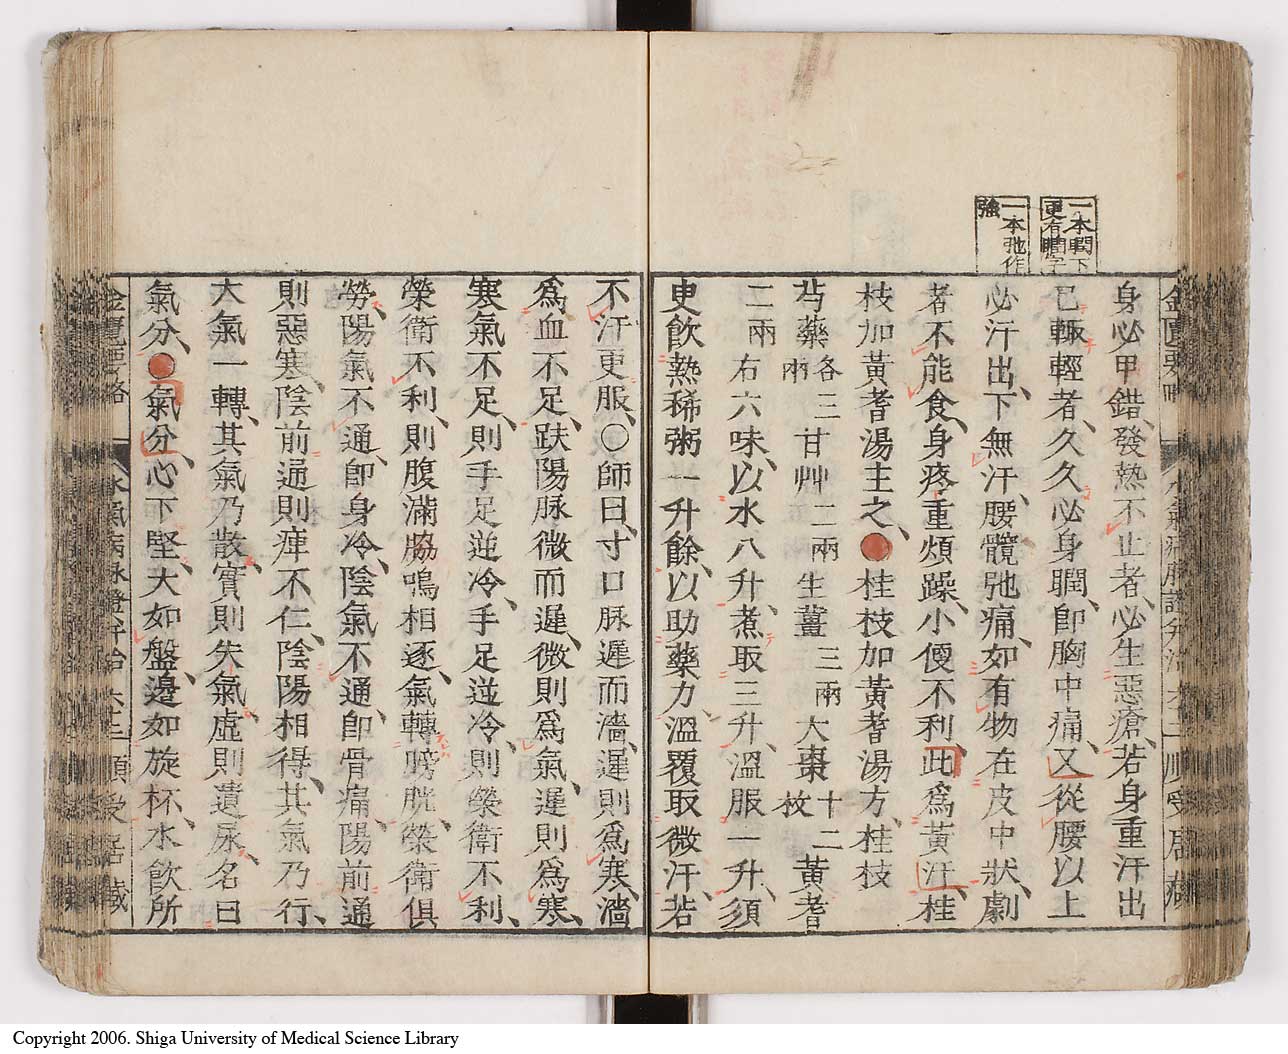 一本瞤下
更有瞤字
一本弛作
強
身必甲錯、發熱不止者、必生惡瘡、若身重汗出
已輙輕者、久久必身瞤、卽胸中痛、又從腰以上
必汗出、下無汗、腰髖弛痛、如有物在皮中狀、劇
者不能食、身疼重煩躁、小便不利、此爲黃汗、桂
枝加黃耆湯主之、●桂枝加黃耆湯方、桂枝
芍藥各三兩甘艸二兩生薑三兩大棗十二枚黃耆
二兩右六味、以水八升、煮取三升、溫服一升、須
史飮熱稀粥一升餘、以助藥力、溫覆取微汗、若
不汗更服、○師曰、寸口脉遲而濇、遲則爲寒、濇
爲血不足、趺陽脉微而遲、微則爲氣、遲則爲寒、
寒氣不足、則手足逆冷、手足逆冷、則榮衛不利、
榮衛不利、則腹滿脇鳴相逐、氣轉膀胱、榮衛俱
勞、陽氣不通、卽身冷、陰氣不通、卽骨痛、陽前通
則惡寒、陰前通則痺不仁、陰陽相得、其氣乃行、
大氣一轉、其氣乃散、實則失氣、虛則遺尿、名曰
氣分、●氣分、心下堅、大如盤、邊如旋杯、水飮所
金匱要略 水氣病脉證幷治 六十三 順受居藏
Copyright 2006. Shiga University of Medical Science Library